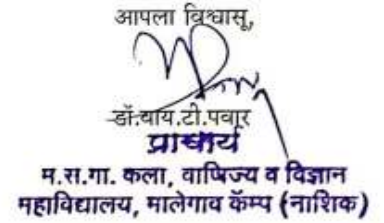 आपला विश्वासू,
डॉ.वाय.टी.पवार
प्राचार्य
म.स.गा. कला, वाणिज्य व विज्ञान
महाविद्यालय, मालेगाव कॅम्प (नाशिक)